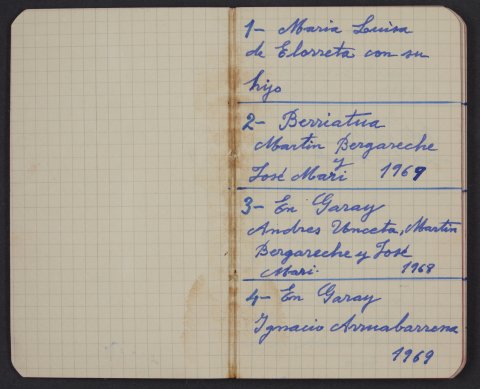 1- Maria Luisa
de Elorreta con su
hijo
2- Berriatua
Martin Bergareche
y
José Mari 1969
3- En Garay
Andres Unceta, Martin
Bergareche y José
Mari. 1968
4- En Garay
Ignacio Arruabarrena
1969